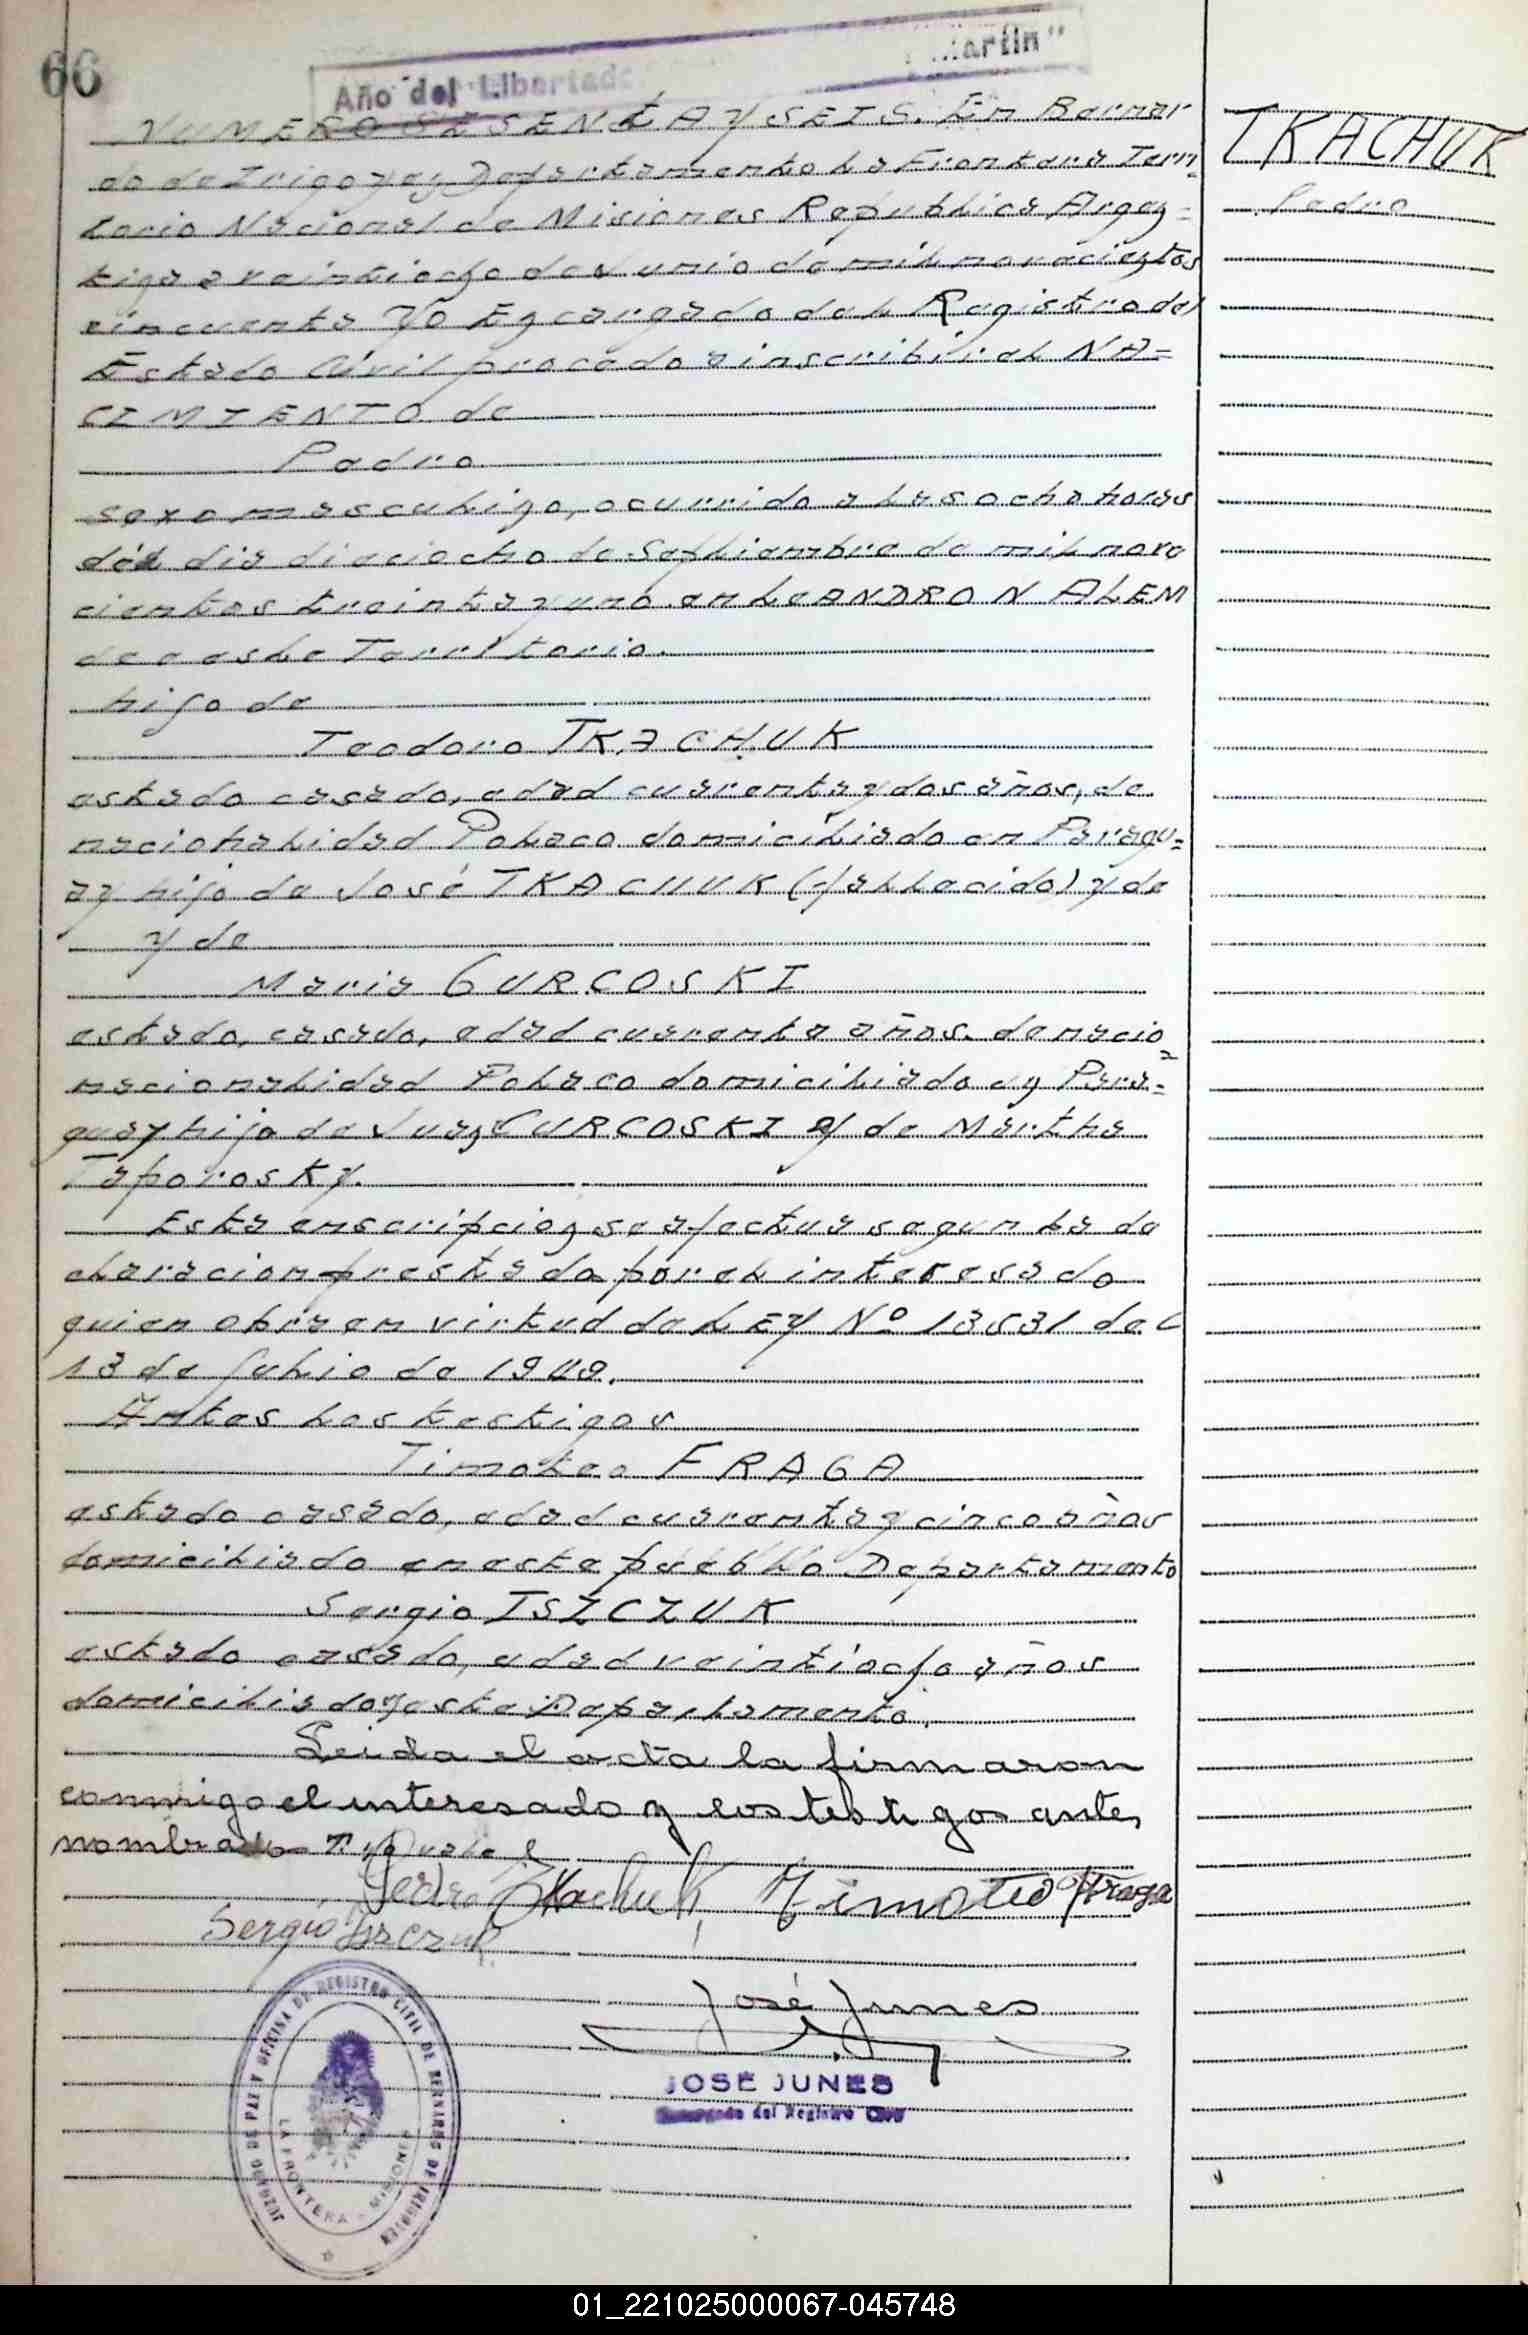 66
Año del Libertado Martin"
NUMERO SESENTA Y SEIS. En Bernar
do de Irigoyen, Departamento La Frontera Terri
torio Nacional de Misiones Republica Argen=
tina a veintiocho de Junio de mil novecientos
cincuenta Yo Encargado del Registro del
Estado Civil procedo a inscribir el NA=
CIMIENTO de
Pedro
sexo masculino, ocurrido a las ocho horas
del dia dieciocho de Septiembre de mil nove
cientos treinta y uno en LeANDRO N ALEM
de este Territorio.
hijo de
Teodoro TKACHUK
estado casado, edad cuarenta y dos años, de
nacionalidad Polaco domiciliado en Paragu=
ay hijo de José TKACHUK (fallecido) y de
y de
Maria GURCOSKI
estado, casado, edad cuarenta años. de nacio=
nacionalidad Polaco domiciliado en Para=
guay hijo de Juan CURCOSKI y de Martha
Taporosky.
Esta enscripcion se efectua segun la de
claracion prestada por el interesado
quien obra en virtud de LEY Nº 13531 del
13 de Julio de 1949.
Antes los testigos
Timoteo FRAGA
estado casado, edad cuarenta y cinco años
domiciliado en este pueblo Departamento
Sergio ISZCZUK
estado casado, edad veintiocho años
domiciliado en este Departamento.
Leida el acta la firmaron
conmigo el interesado y los testigos antes
nombrado
Pedro Tkachuk Timoteo Fraga
Sergio Iszczuk
José Junes
JOSÉ JUNES
Encargado del Registro Civil
JUZGADO DE PAZ Y OFICINA DE REGISTRO CIVIL DE BERNARDO DE IRIGOYEN
LA FRONTERA - MISIONES
TKACHUK
Pedro
01_221025000067-045748